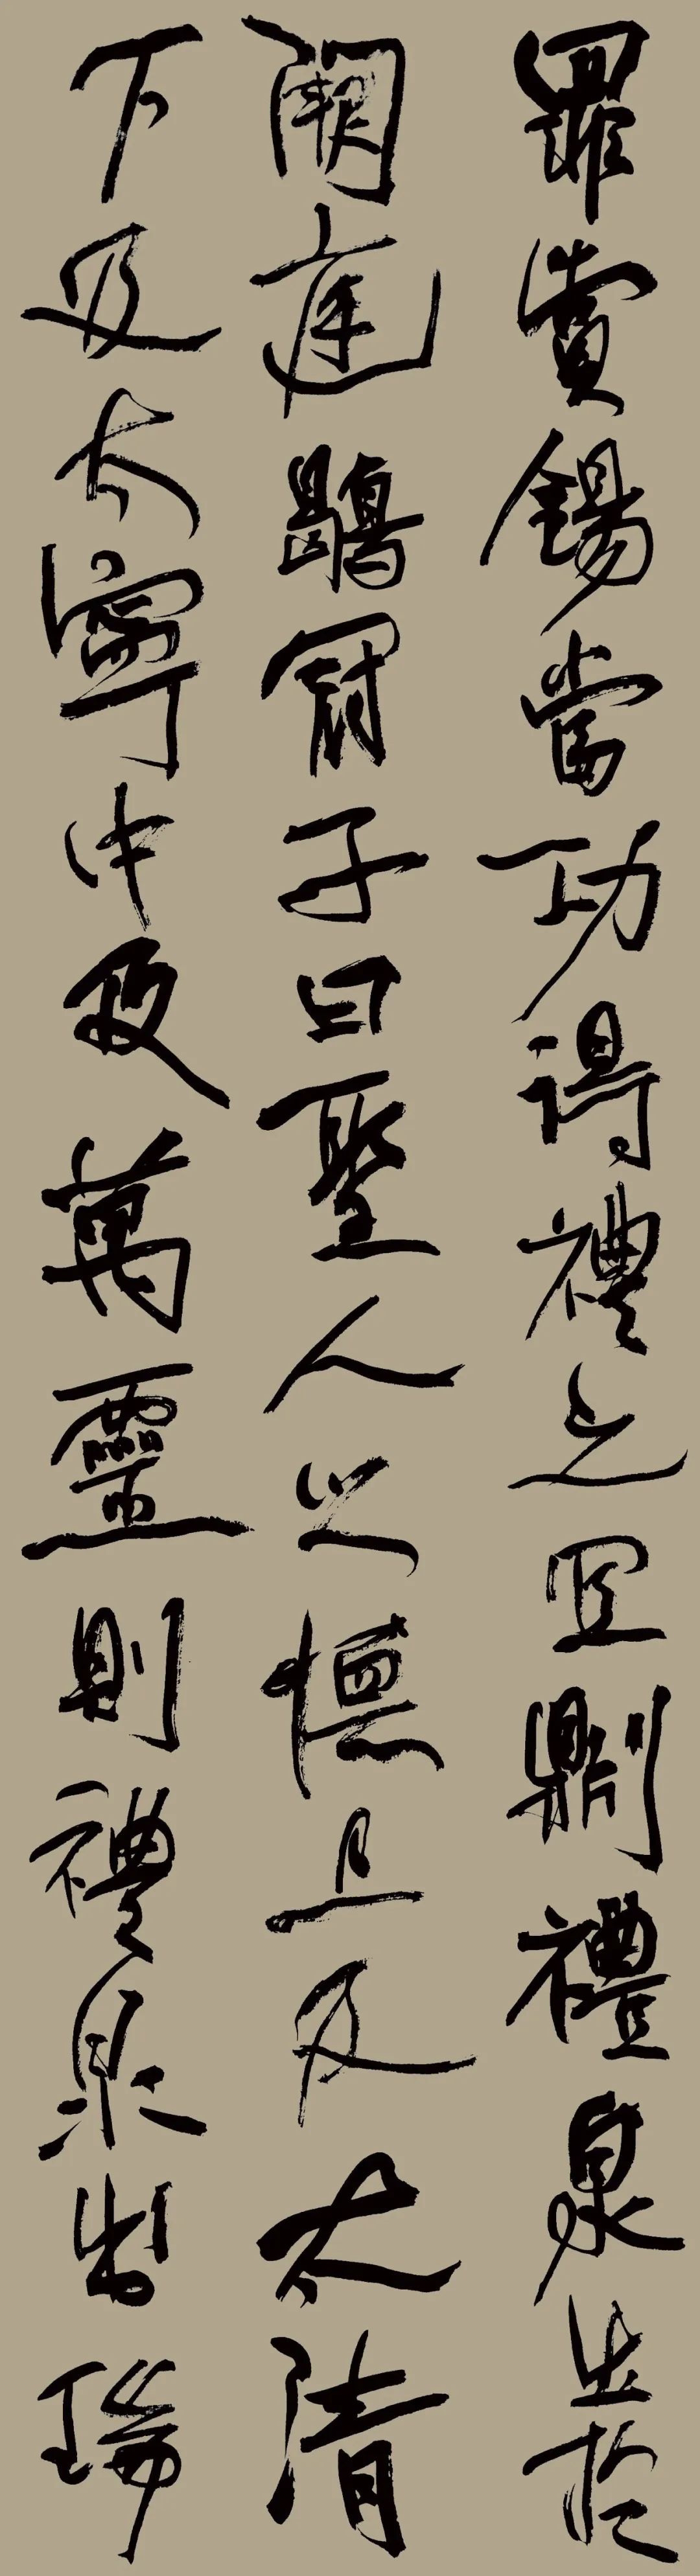 罪賞錫當功得禮之宜則禮泉出於
闕庭鶡冠子曰聖人之德上及太清
下及太寧中及萬靈則禮泉出瑞